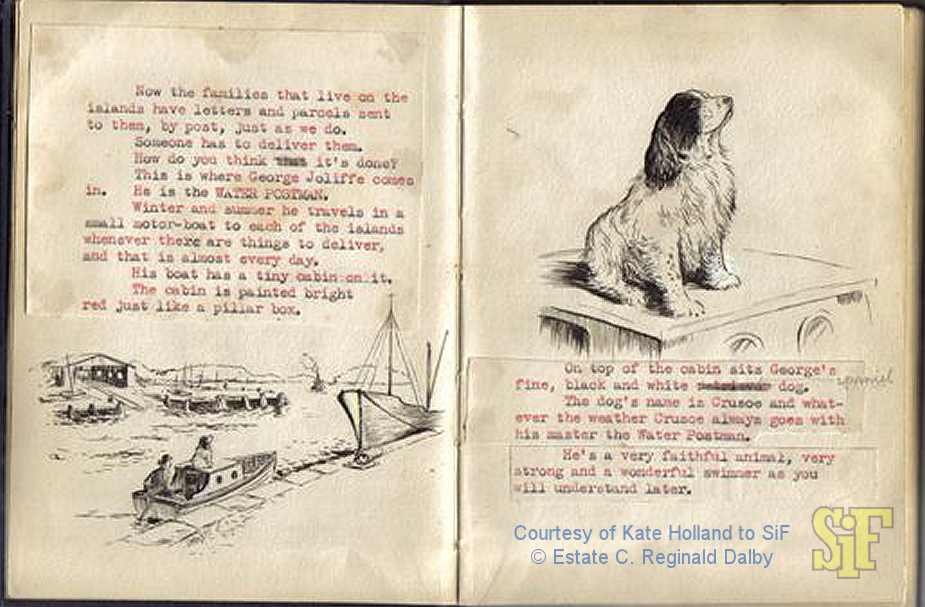 Now the families that live on the
islands have letters and parcels sent
to them, by post, just as we do.
Someone has to deliver them.
How do you think it's done?
This is where George Joliffe comes
in. He is the WATER POSTMAN.
Winter and summer he travels in a
small motor-boat to each of the islands
whenever there are things to deliver,
and that is almost every day.
His boat has a tiny cabin on it.
The cabin is painted bright
red just like a pillar box.
On top of the cabin sits George's
fine, black and white retriever dog. spaniel
The dog's name is Crusoe and what-
ever the weather Crusoe always goes with
his master the Water Postman.
He's a very faithful animal, very
strong and a wonderful swimmer as you
will understand later.
Courtesy of Kate Holland to SiF
© Estate C. Reginald Dalby
SiF